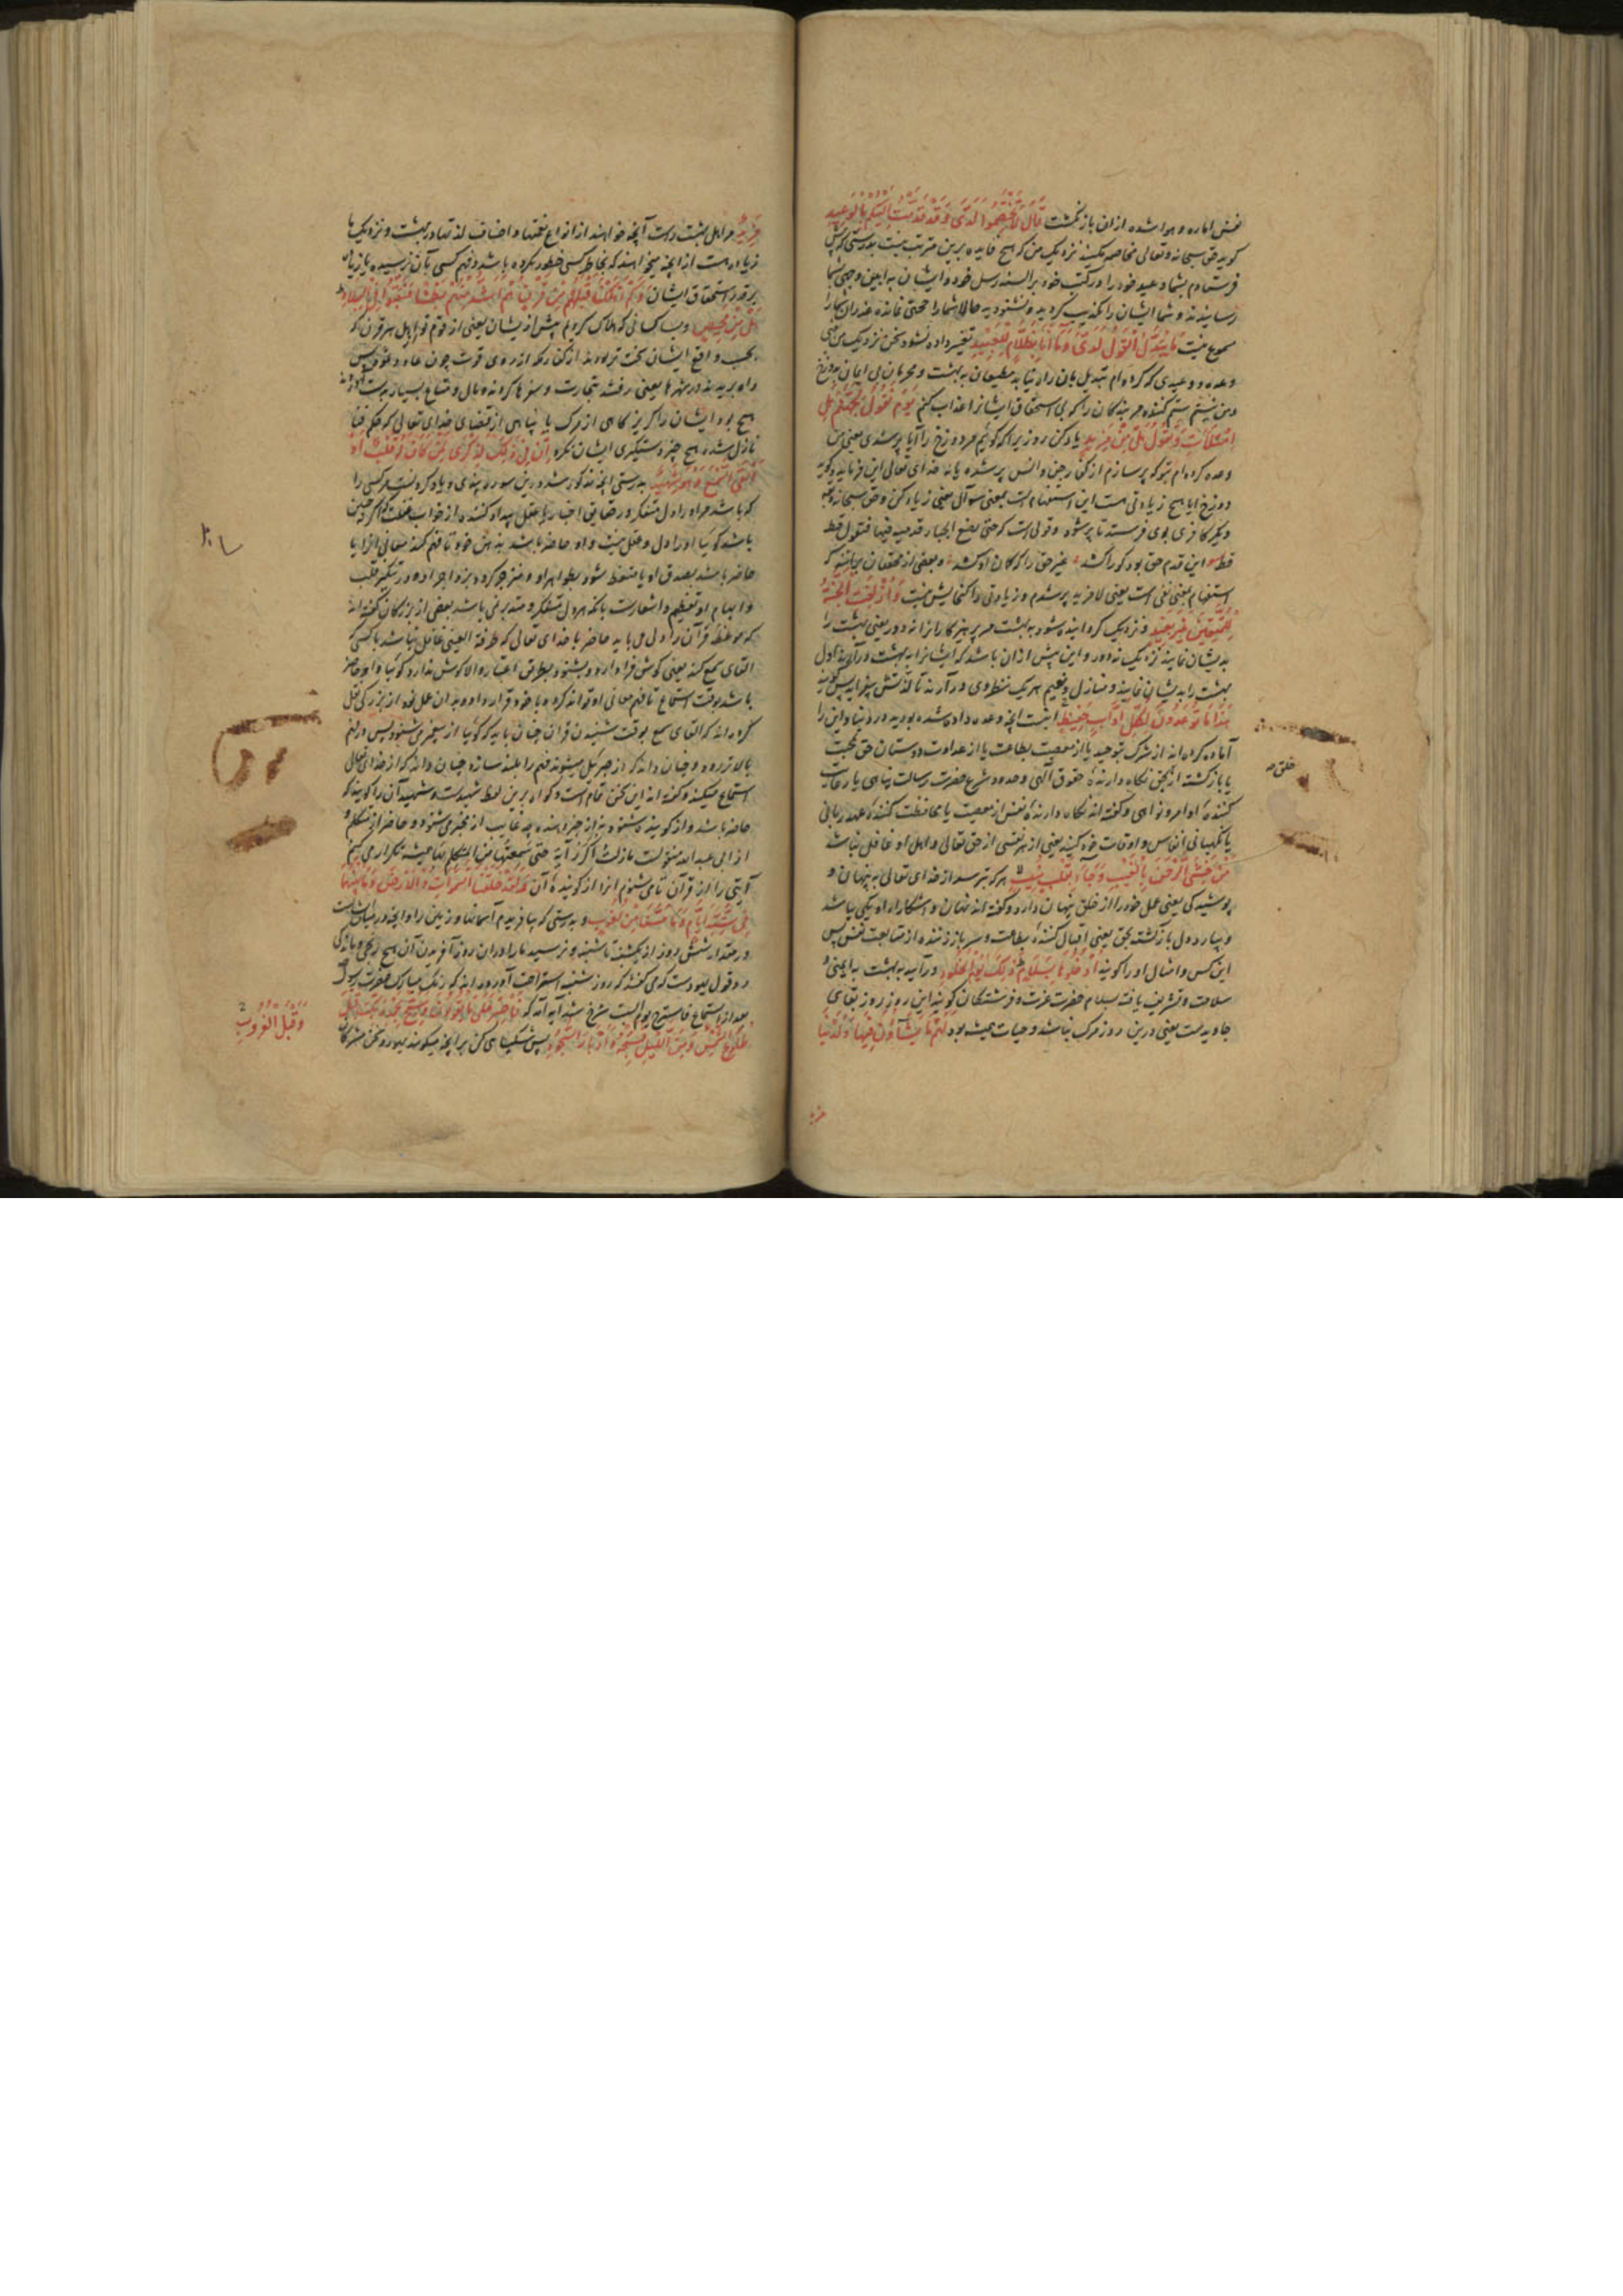 نفس اماره و هوا شده از ان باز نگشت قَالَ لَا تَخْتَصِمُوا لَدَىَّ وَقَدْ قَدَّمْتُ إِلَيْكُمْ بِالْوَعِيدِ
گوید حق سبحانه و تعالی مخاصمه مکنید نزدیک من که هیچ فایده برین مترتب نیست بدرستی که پیش
فرستادم بشما وعید خود را در کتب خود بر السنه رسل خود و ایشان
رسانیدند و شما ایشان را تکذیب کردید و نشنودید حالا شما را حجتی نمانده
مسموع نیست مَا يُبَدَّلُ الْقَوْلُ لَدَىَّ وَمَا أَنَا بِظَلَّامٍ لِلْعَبِيدِ تغییر داده نشود سخن نزدیک من یعنی
وعده و وعیدی که کرده ام تبدیل بدان راه نیابد مطیعان به بهشت و مجرمان بی ایمان بدوزخ
و من نیستم ستم کننده مر بندگان را که بی استحقاق ایشانرا عذاب کنم يَوْمَ نَقُولُ لِجَهَنَّمَ هَلِ
امْتَلَأْتِ وَتَقُولُ هَلْ مِنْ مَزِيدٍ یاد کن روزیرا که گوئیم مر دوزخ را آیا پر شدی یعنی من
وعده کرده ام بتو که پر سازم از جن و انس پر شده یا نه خدای تعالی این فرماید و گوید
دوزخ آیا هیچ زیادتی هست این استفهام است بمعنی سوال یعنی زیاده کن و حق سبحانه
دیگر کافری بوی فرستد تا پر شود و قولی است که حتی یضع الجبار قدمیه فیها فتقول قط
قط این قدم حق بود کو را کشد غیر حق را که کمان او کشد و بعضی از محققان برانند که
استفهام بمعنی نفی است یعنی لا مزید پر شدم و زیادتی را گنجایش نیست وَأُزْلِفَتِ الْجَنَّةُ
لِلْمُتَّقِينَ غَيْرَ بَعِيدٍ و نزدیک گردانیده شود بهشت مر پرهیزگارانرا نه دور یعنی بهشت را
بدیشان نمایند نزدیک نه دور و این پیش از ان باشد که ایشانرا به بهشت در آرند اول
بهشت را بدیشان نمایند و منازل و نعیم هر یک بنظر وی در آرند تا لذتش بیفزاید پس گویند
هَذَا مَا تُوعَدُونَ لِكُلِّ أَوَّابٍ حَفِيظٍ اینست آنچه وعده داده شده بودید در دنیا و این را
آماده کرده اند از شرک بتوحید یا از معصیت بطاعت یا از عداوت دوستان حق بمحبت
یا بازگشته از بحق نگاه دارندهٔ حقوق الهی و حدود شرع حضرت رسالت پناهی یا رعایت
کنندهٔ اوامر و نواهی و گفته اند نگاه دارندهٔ نفس از معصیت یا محافظت کنندهٔ عهد ربانی
یا نگهبانی انفاس و اوقات خود کنند یعنی از هر نفسی از حق تعالی و اهل او غافل نباشد
مَنْ خَشِيَ الرَّحْمَنَ بِالْغَيْبِ وَجَاءَ بِقَلْبٍ مُنِيبٍ هر که بترسد از خدای تعالی به پنهان و
پوشیدگی یعنی عمل خود را از خلق پنهان دارد و گفته اند نهان و آشکارا او یکی باشد
و بیارد دل بازگشته بحق یعنی اقبال کننده بطاعت و سر باز زننده از متابعت نفس پس
این کس و امثال او را گویند ادْخُلُوهَا بِسَلَامٍ ذَلِكَ يَوْمُ الْخُلُودِ در آیید به بهشت به ایمنی و
سلامت و تشریف یافته بسلام حضرت عزت و فرشتگان گویند این روز روز بقای
جاوید است یعنی درین روز مرگ نباشد و حیات همیشه بود لَهُمْ مَا يَشَاءُونَ فِيهَا وَلَدَيْنَا
خلق
مزید
مَزِيدٌ مر اهل بهشت راست آنچه خواهند از انواع نعمتها و اصناف لذتها در بهشت و نزدیک ما
زیاده هست از آنچه میخواهند که بخاطر کسی خطور نکرده باشد و فهم کسی بآن نرسیده
بر قدر استحقاق ایشان وَكَمْ أَهْلَكْنَا قَبْلَهُمْ مِنْ قَرْنٍ هُمْ أَشَدُّ مِنْهُمْ بَطْشًا فَنَقَّبُوا فِي الْبِلَادِ
هَلْ مِنْ مَحِيصٍ و بسا کسانی که هلاک کردیم پیش از یشان یعنی از قوم تو اهل هر قرن که
بحسب واقع ایشان سخت تر بودند از کفار مکه از روی قوت چون عاد و ثمود پس
راه بریدند در شهرها یعنی رفتند بتجارت و سفرها کردند و مال و متاع بسیار بدست آوردند
هیچ بود ایشان را گریزگاهی از مرگ یا پناهی از قضای خدای تعالی که حکم فنا
نازل شد هیچ چیز دستگیری ایشان نکرد إِنَّ فِي ذَلِكَ لَذِكْرَى لِمَنْ كَانَ لَهُ قَلْبٌ أَوْ
أَلْقَى السَّمْعَ وَهُوَ شَهِيدٌ بدرستی آنچه مذکور شد درین سوره پندی و یادکردنیست مر کسی را
که باشد مر او را دل متفکر در حقایق اخبار یا عقل بیدار کننده از خواب غفلت
باشد گویا او را دل و عقل نیست و او حاضر باشد بذهن خود تا فهم کند معانی آنرا یا
حاضر باشد بصدق او یا متعظ شود بظواهر او و منزجر گردد بزواجر او و در تنکیر قلب
و ابهام او تعظیم و اشعارست بآنکه هر دل متفکر و متدبر نمی باشد بعضی از بزرگان گفته اند
که موعظهٔ قرآن را دل می باید حاضر با خدای تعالی که طرفة العینی غافل نباشد یا کسی که
القای سمع کند یعنی گوش فرا دارد و بشنود بطریق اعتبار والا گوش ندارد گویا و او حاضر
باشد بوقت استماع تا فهم معانی او تواند کرد و با خود قرار داده بدان عمل نماید از بزرگی نقل
کرده اند که القای سمع بوقت شنیدن قرآن چنان باید که گویا از پیغمبر می شنود پس در فهم
بالاتر رود و چنان داند که از جبرئیل میشنود فهم را بلند سازد چنان داند که از خدای تعالی
استماع میکند و گفته اند این سخن تمام است و گواه برین لفظ شهیدست و شهید آن را گویند که
حاضر باشد و از گوینده شنود نه از خبر دهنده چه غایب از مخبری شنود و حاضر از متکلم و
از ابی عبد الله منقولست ما زلت اکرر آیة حتی سمعتها من المتکلم بها همیشه تکرار می کنم
آیتی را از قرآن تا می شنوم آنرا از گویندهٔ آن وَلَقَدْ خَلَقْنَا السَّمَاوَاتِ وَالْأَرْضَ وَمَا بَيْنَهُمَا
فِي سِتَّةِ أَيَّامٍ وَمَا مَسَّنَا مِنْ لُغُوبٍ و بدرستی که بیافریدیم آسمانها و زمین را و آنچه در میان
در مقدار شش روز از یکشنبه تا شنبه و نرسید ما را در ان روز آفریدن آن هیچ رنجی و ماندگی
رد قول یهودست که می گفتند که روز شنبه استراحت آورده اند که رنگ مبارک حضرت رسول
بعد از استماع فاستراح یوم السبت سرخ شد آیه آمد که فَاصْبِرْ عَلَى مَا يَقُولُونَ وَسَبِّحْ بِحَمْدِ رَبِّكَ قَبْلَ
طُلُوعِ الشَّمْسِ وَمِنَ اللَّيْلِ فَسَبِّحْهُ وَأَدْبَارَ السُّجُودِ پس شکیبائی کن بر آنچه میگویند یهود و سخن مشرکان
وَقَبْلَ الْغُرُوبِ